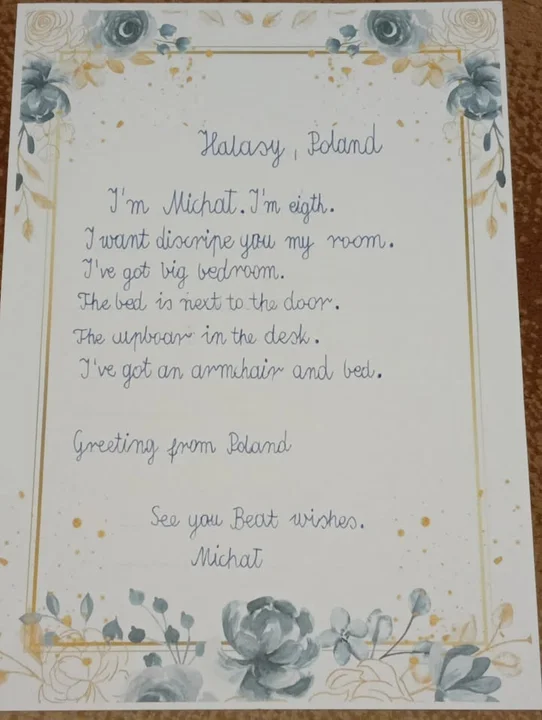 Halasy, Poland
I'm Michał. I'm eigth.
I want discripe you my room.
I've got big bedroom.
The bed is next to the door.
The upboar in the desk.
I've got an armchair and bed.
Greeting from Poland
See you Beat wishes.
Michał